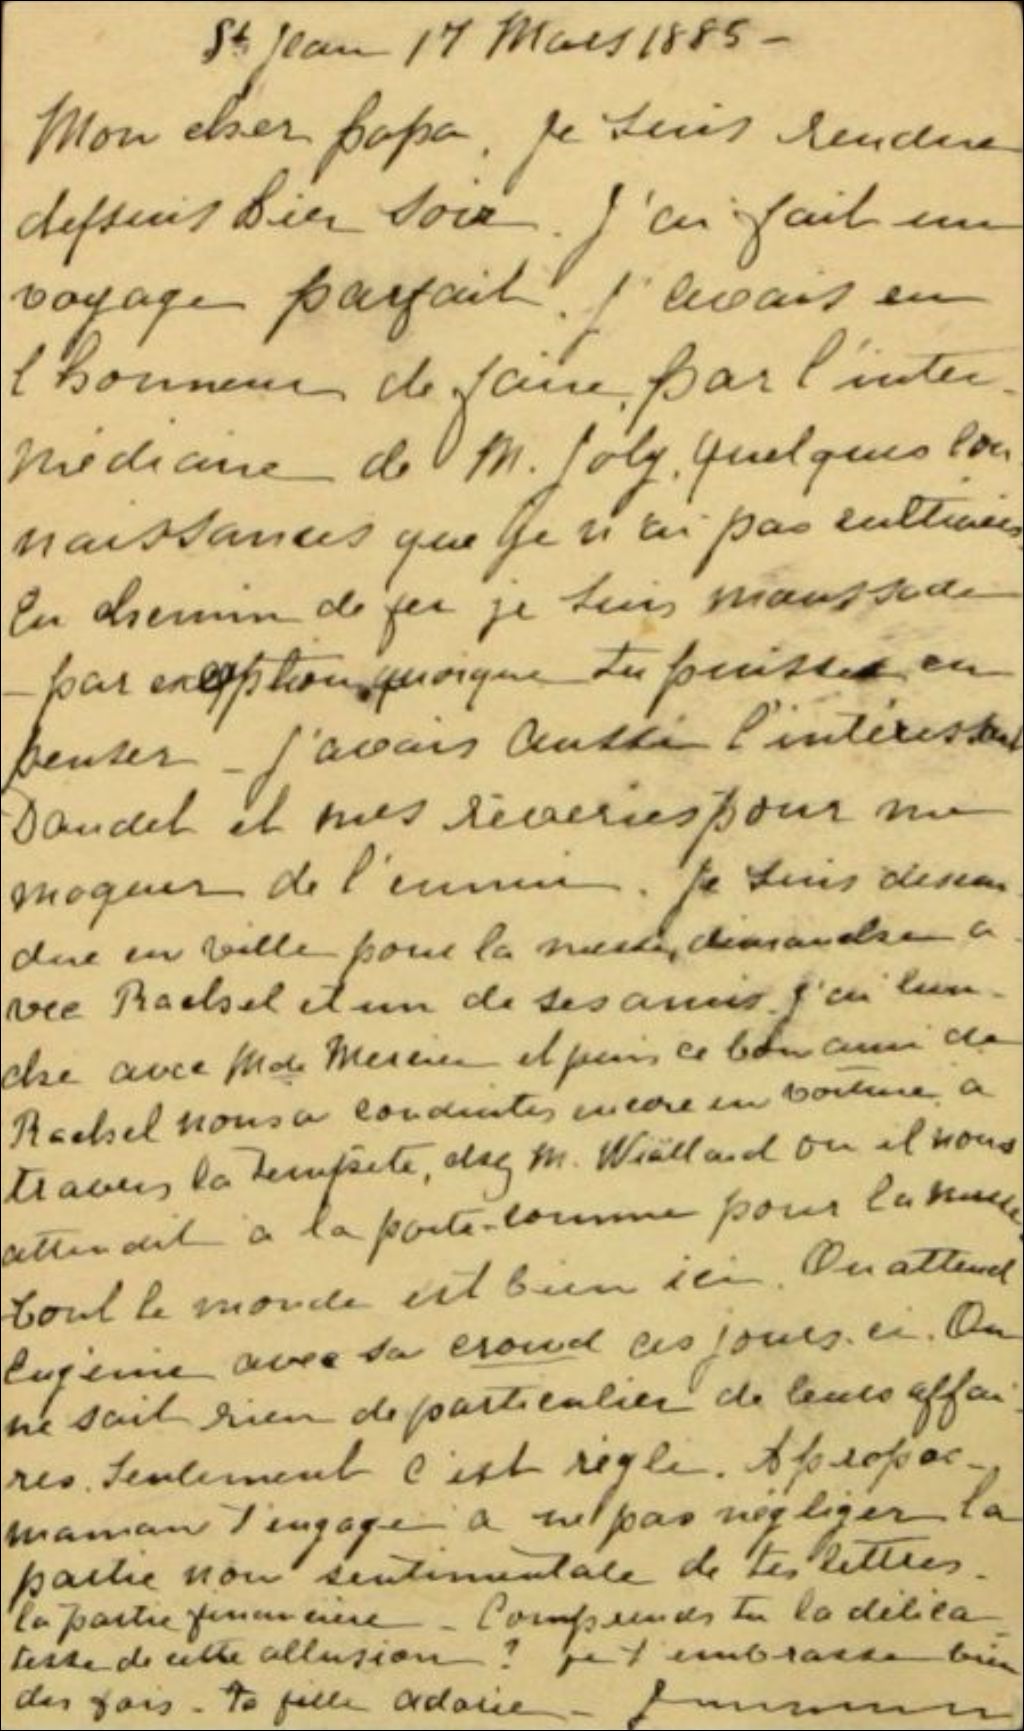 St Jean 17 Mars 1885 -
Mon cher papa, je suis rendue
depuis hier soir. J'ai fait un
voyage parfait. J'avais eu
l'honneur de faire, par l'inter-
médiaire de M. Joly, quelques con-
naissances que je n'ai pas cultivées.
En chemin de fer je suis maussade
- par exception, quoique tu puisses en
penser - J'avais aussi l'intéressant
Daudet et mes rêveries pour me
moquer de l'ennui. Je suis descen-
due en ville pour la messe, dimanche a-
vec Rachel et un de ses amis. J'ai lun-
ché avec Mde Mercier et puis ce bon ami de
Rachel nous a conduites encore en voiture, à
travers la tempête, chez M. où il nous
attendit à la porte - comme pour la messe.
Tout le monde est bien ici. On attend
Eugénie avec sa crowd ces jours-ci. On
ne sait rien de particulier de leurs affai-
res. Seulement c'est réglé. Apropos -
maman t'engage à ne pas négliger la
partie non sentimentale de tes lettres -
la partie financière - Comprends tu la délica-
tesse de cette allusion ? Je t'embrasse bien
des fois - Ta fille adorée -